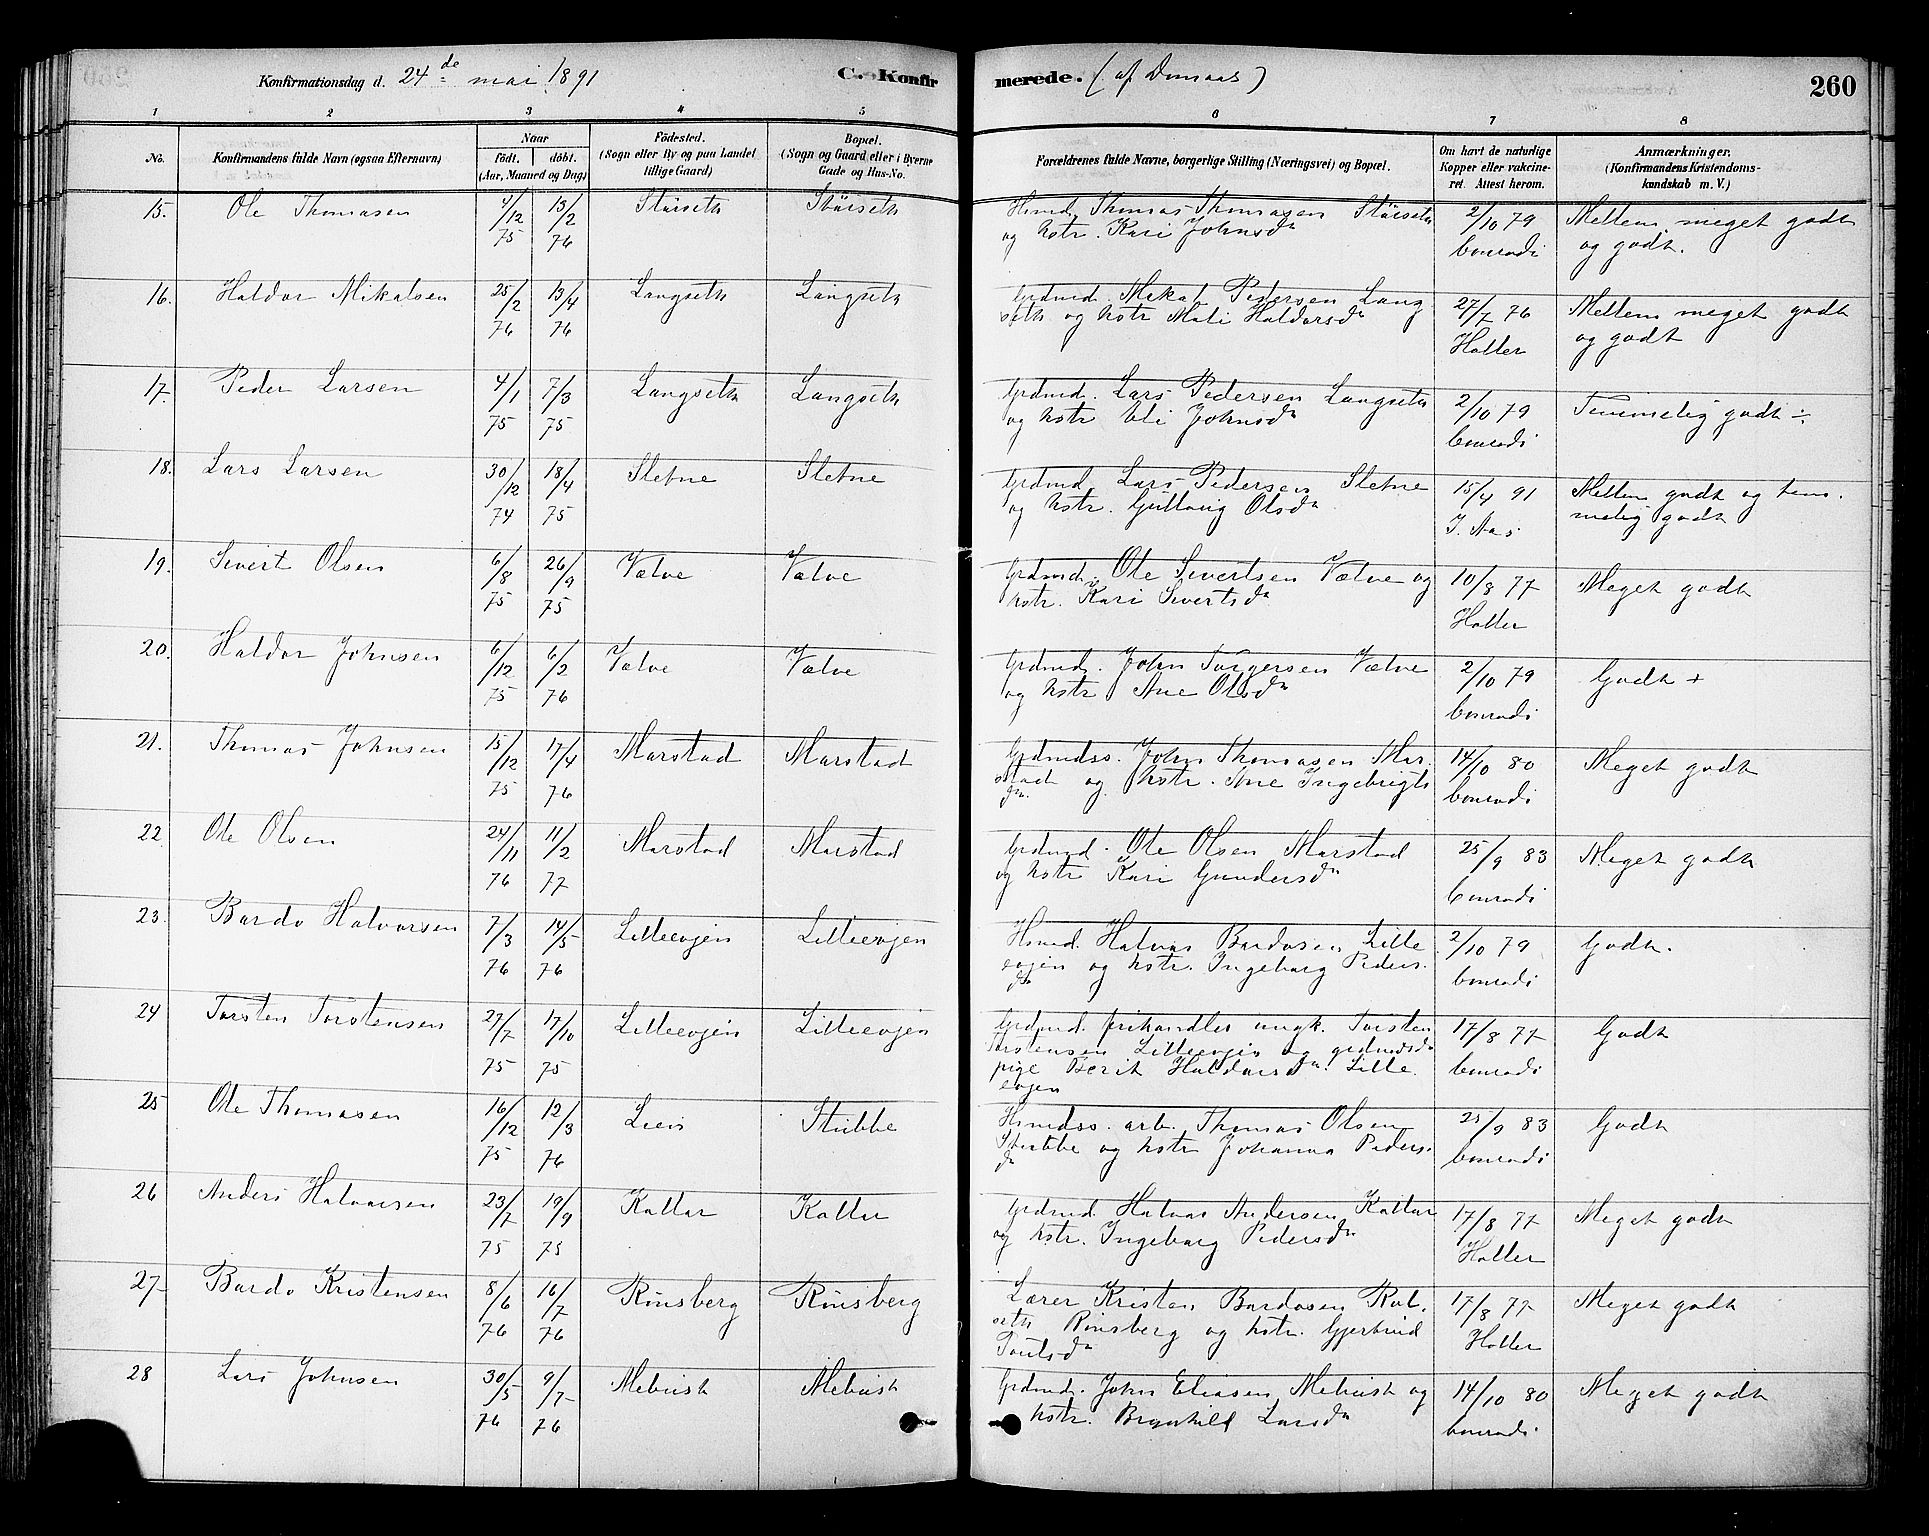 Konfirmationsdag d. 24de mai 1891
C. Konfirmerede. (af )
260
1 2 3 4 5 6 7 8
No.
Konfirmandens fulde Navn (ogsaa Efternavn)
Naar
født. døbt.
(Aar, Maaned og Dag)
Fødested.
(Sogn eller By og paa Landet tillige Gaard)
Bopæl.
(Sogn og Gaard eller i Byerne Gade og Hus-No.
Forældrenes fulde Navne, borgerlige Stilling (Næringsvei) og Bopæl.
Om havt de naturlige Kopper eller vakcineret. Attest herom.
Anmærkninger,
(Konfirmandens Kristendomskundskab m. V.)
15. Ole Thomasen 4/12 75 13/2 76 Størseth Størseth Hsmd. Thomas Thomasen Størseth
og hstr. Kari Johnsdr 2/10 79 Conradi Mellem meget godt
og godt.
16. Haldor Mikalsen 25/2 76 13/4 76 Langseth Langseth Grdmd. Mikal Pedersen Lang
seth og hstr Mali Haldorsdr 27/7 76 Holler Mellem meget godt
og godt
17. Peder Larsen 4/1 75 7/3 75 Langseth Langseth Grdmd. Lars Pedersen Langseth
og hstr Eli Johnsdr 2/10 79 Conradi Temmelig godt ÷
18. Lars Larsen 30/12 74 18/4 75 Sletne Sletne Grdmd. Lars Pedersen Sletne
og hstr. Guldvig Olsdr 15/4 91 J. Aas Mellem godt og tem.
melig godt
19. Sivert Olsen 6/8 75 26/9 75 Vælve Vælve Grdmd. Ole Sivertsen Vælve og
hstr. Kari Sivertsdr 10/8 77 Holler Meget godt
20. Haldor Johnsen 6/12 75 6/2 76 Vælve Vælve Grdmd. John Torgersen Vælve
og hstr Ane Olsdr 2/10 79 Conradi Godt +
21. Thomas Johnsen 15/12 75 17/4 76 Marstad Marstad Grdmdss. John Thomasen Mar.
stad og hstr. Ane Ingebrigts
dr. 14/10 80 Conradi Meget godt
22 Ole Olsen 24/11 76 11/2 77 Marstad Marstad Grdmd. Ole Olsen Marstad
og hstr Kari Gundersdr 25/9 83 Conradi Meget godt
23. Bardo Halvorsen 7/3 76 14/5 76 Lilleevjen Lilleevjen Hsmd. Halvor Bardosen Lille
evjen og hstr. Ingeborg Peders.
dr 2/10 79 Conradi Godt.
24 Torsten Torstensen 27/7 75 17/10 75 Lilleevjen Lilleevjen Grdmd. frihandler ungk. Torsten
Torstensen Lilleevjen og grdmdsdr
pige Berit Haldorsdr. Lille
evjen 17/8 77 Conradi Godt
25 Ole Thomasen 16/12 75 12/3 76 Lien Stubbe Hsmdss. arb. Thomas Olsen
Stubbe og hstr Johanna Peders.
dr 25/9 83 Conradi Godt
26 Anders Halvorsen 23/7 75 19/9 75 Kallar Kallar Grdmd Halvor Andersen Kallar
og hstr. Ingeborg Pedersdr 17/8 77 Holler Meget godt
27 Bardo Kristensen 8/6 76 16/7 76 Rønsberg Rønsberg Lærer Kristen Bardosen Rol.
seth Rønsberg og hstr. Gjertrud
Poulsdr 17/8 77 Holler Meget godt
28 Lars Johnsen 30/5 76 9/7 76 Mebust Mebust Grdmd. John Eliasen Mebust og
hstr. Brynhild Larsdr 14/10 80 Conradi Meget godt